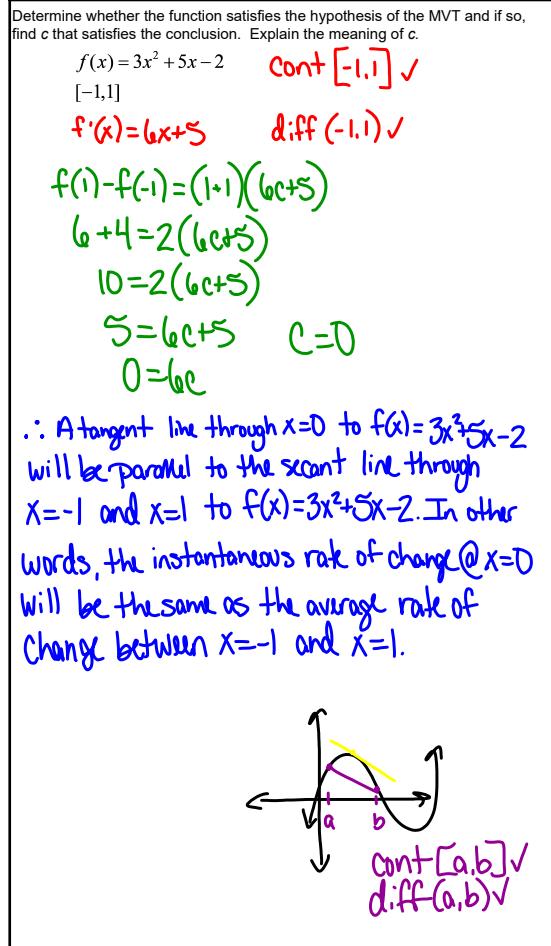 Determine whether the function satisfies the hypothesis of the MVT and if so,
find c that satisfies the conclusion.  Explain the meaning of c.
f(x) = 3x² + 5x – 2
cont [-1,1] ✓
[–1,1]
f'(x) = 6x+5
diff (-1,1) ✓
f(1)-f(-1) = (1+1)(6c+5)
6+4=2(6c+5)
10=2(6c+5)
5=6c+5
c=0
0=6c
∴ A tangent line through x=0 to f(x)= 3x²+5x-2
will be parallel to the secant line through
x=-1 and x=1 to f(x)=3x²+5x-2. In other
words, the instantaneous rate of change @ x=0
will be the same as the average rate of
change between x=-1 and x=1.
a b
cont [a,b] ✓
diff (a,b) ✓